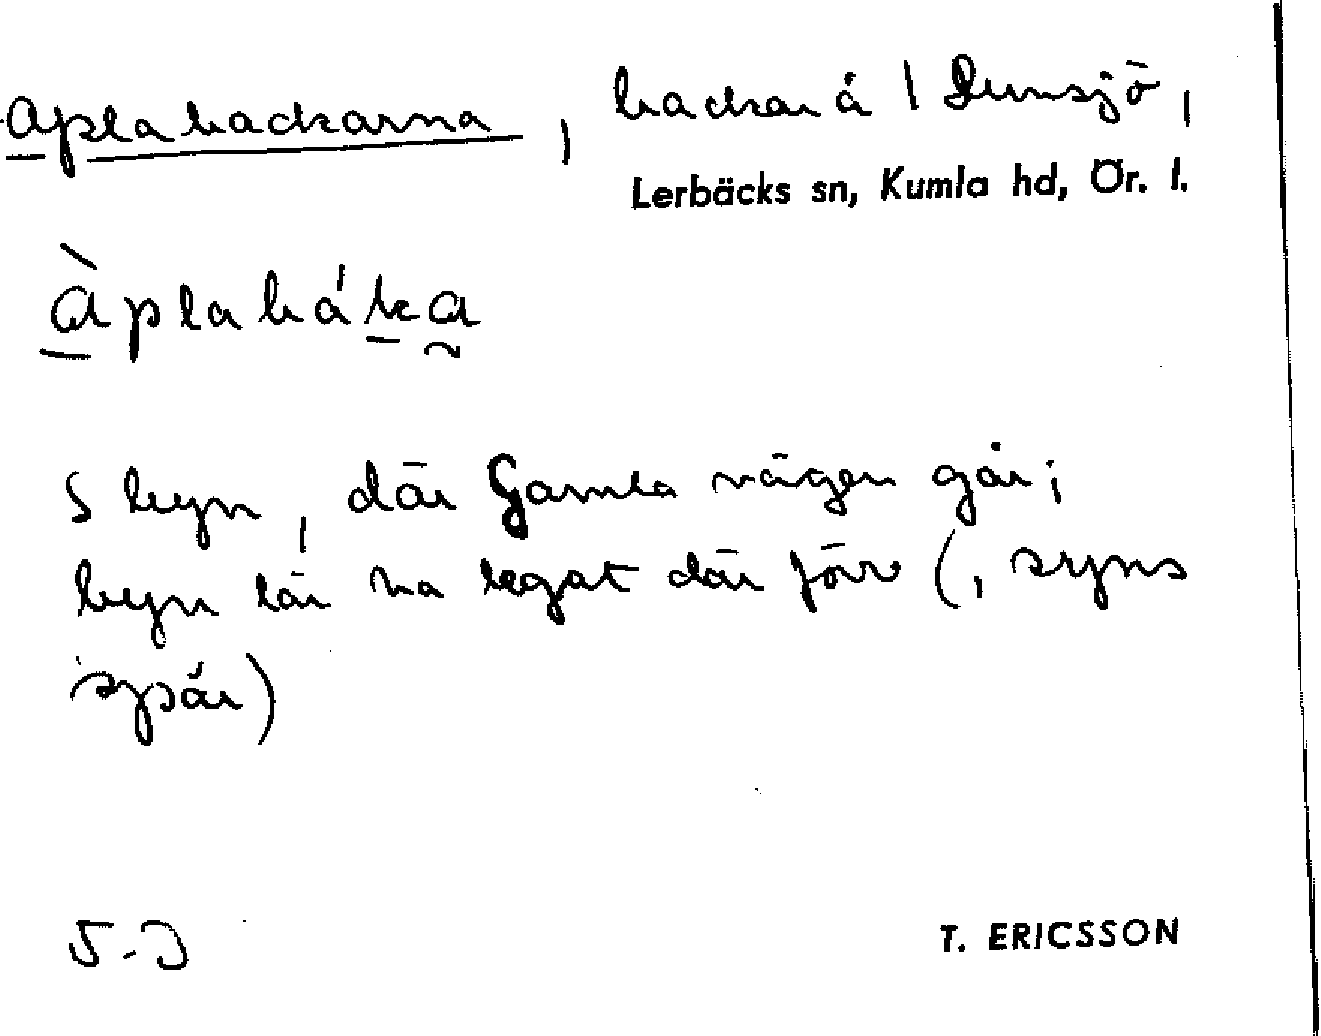 Aplabackarna, backar å 1 Dunsjö,
Lerbäcks sn, Kumla hd, Ör. l.
àplabáka
S byn, där Gamla vägen går;
byn lär ha legat där förr (, syns
spår)